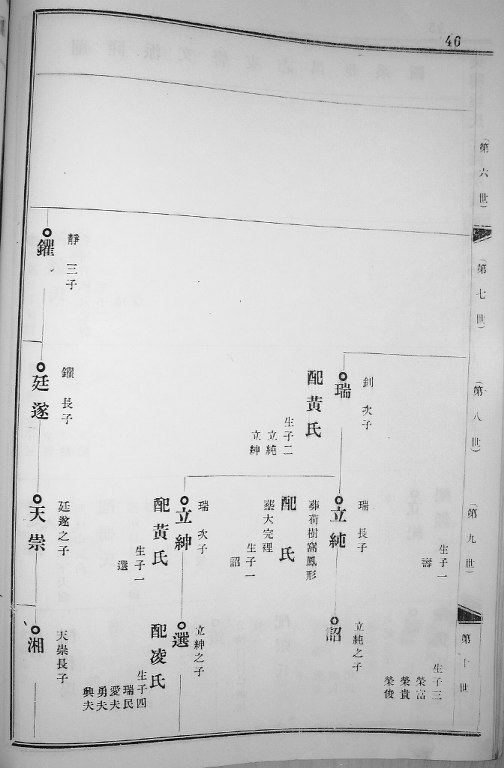 46
（第六世）
（第七世）
（第八世）
（第九世）
第十世
釗 次子
瑞
配黃氏
生子二
立純
立紳
生子一
壽
瑞 長子
立純
葬荷樹窩鳳形
配 氏
葬大完裡
生子一
詔
瑞 次子
立紳
配黃氏
生子一
選
生子三
榮富
榮貴
榮俊
立純之子
詔
立紳之子
選
配凌氏
生子四
瑞民
愛夫
勇夫
興夫
靜 三子
鑺
鑺 長子
廷遂
廷遂之子
天崇
天崇長子
湘